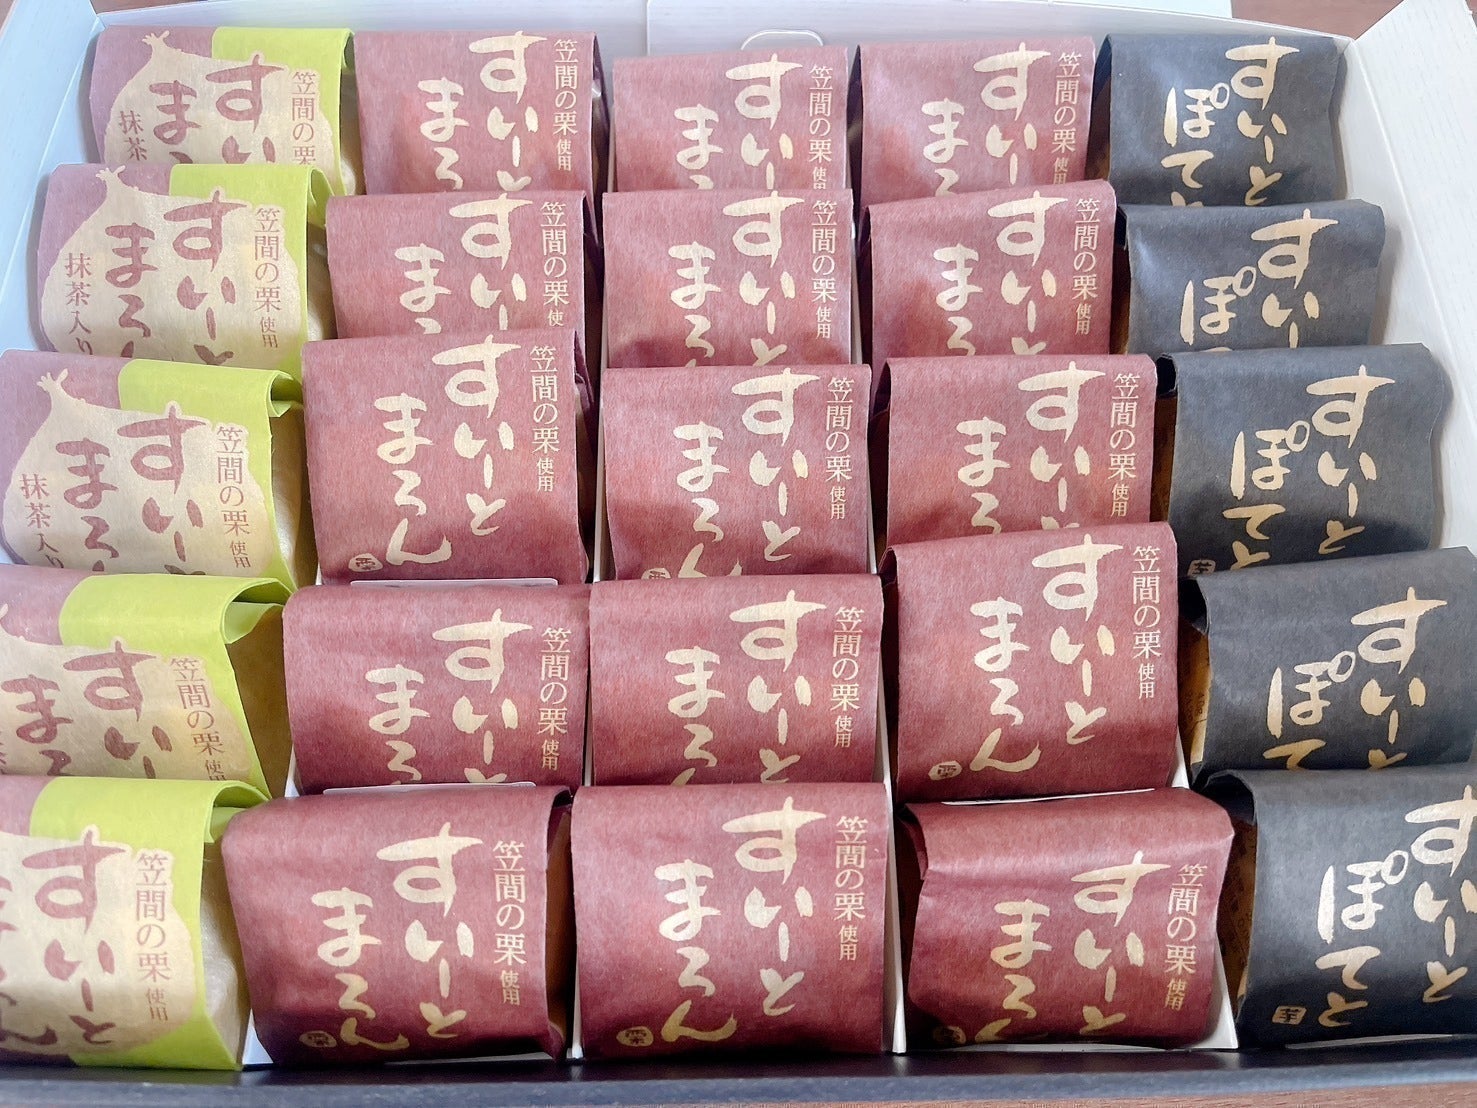 笠間の栗
すい
まろ
抹茶
笠間の栗 使用
すいーと
まろ
笠間の栗 使用
すいー
まろ
笠間の栗 使用
すいー
まろ
すいーと
ぽて
笠間の栗 使用
すいーと
まろん
抹茶入り
笠間の栗 使用
すいー
まろ
笠間の栗 使用
すいーと
まろ
笠間の栗 使用
すいー
まろ
すいー
ぽ
笠間の栗 使用
すいーと
まろん
抹茶入り
笠間の栗 使用
すいーと
まろん
笠間の栗 使用
すいーと
まろん
笠間の栗 使用
すいーと
まろ
すいーと
ぽてと
芋
笠間の栗 使用
すいー
まろ
笠間の栗 使用
すいーと
まろ
笠間の栗 使用
すいーと
まろ
笠間の栗 使用
すいーと
まろん
すいーと
ぽて
笠間の栗 使用
すいーと
ろん
笠間の栗 使用
すいーと
まろん
笠間の栗 使用
すいーと
まろん
栗
笠間の栗 使用
すいーと
まろん
すいーと
ぽてと
芋